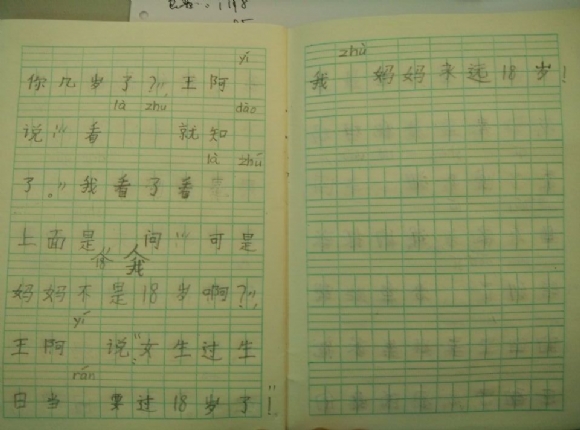 yí
你几岁了?”王阿
là zhú dào
说:“看 就知
là zhú
了。”我看了看
上面是 问:“可是
你 我
妈妈不是18岁啊?”
yí
王阿 说:“女生过生
rán
日当 要过18岁了!”
zhù
我 妈妈永远18岁!